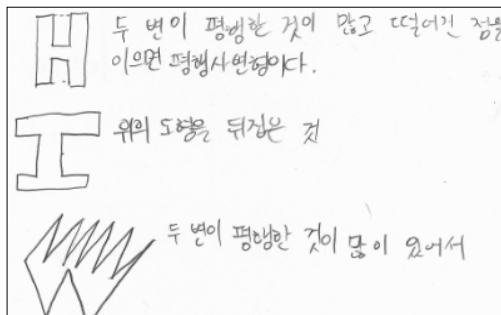 두 변이 평행한 것이 많고 떨어진 점을
이으면 평행사변형이다.
위의 도형을 뒤집은 것
두 변이 평행한 것이 많이 있어서